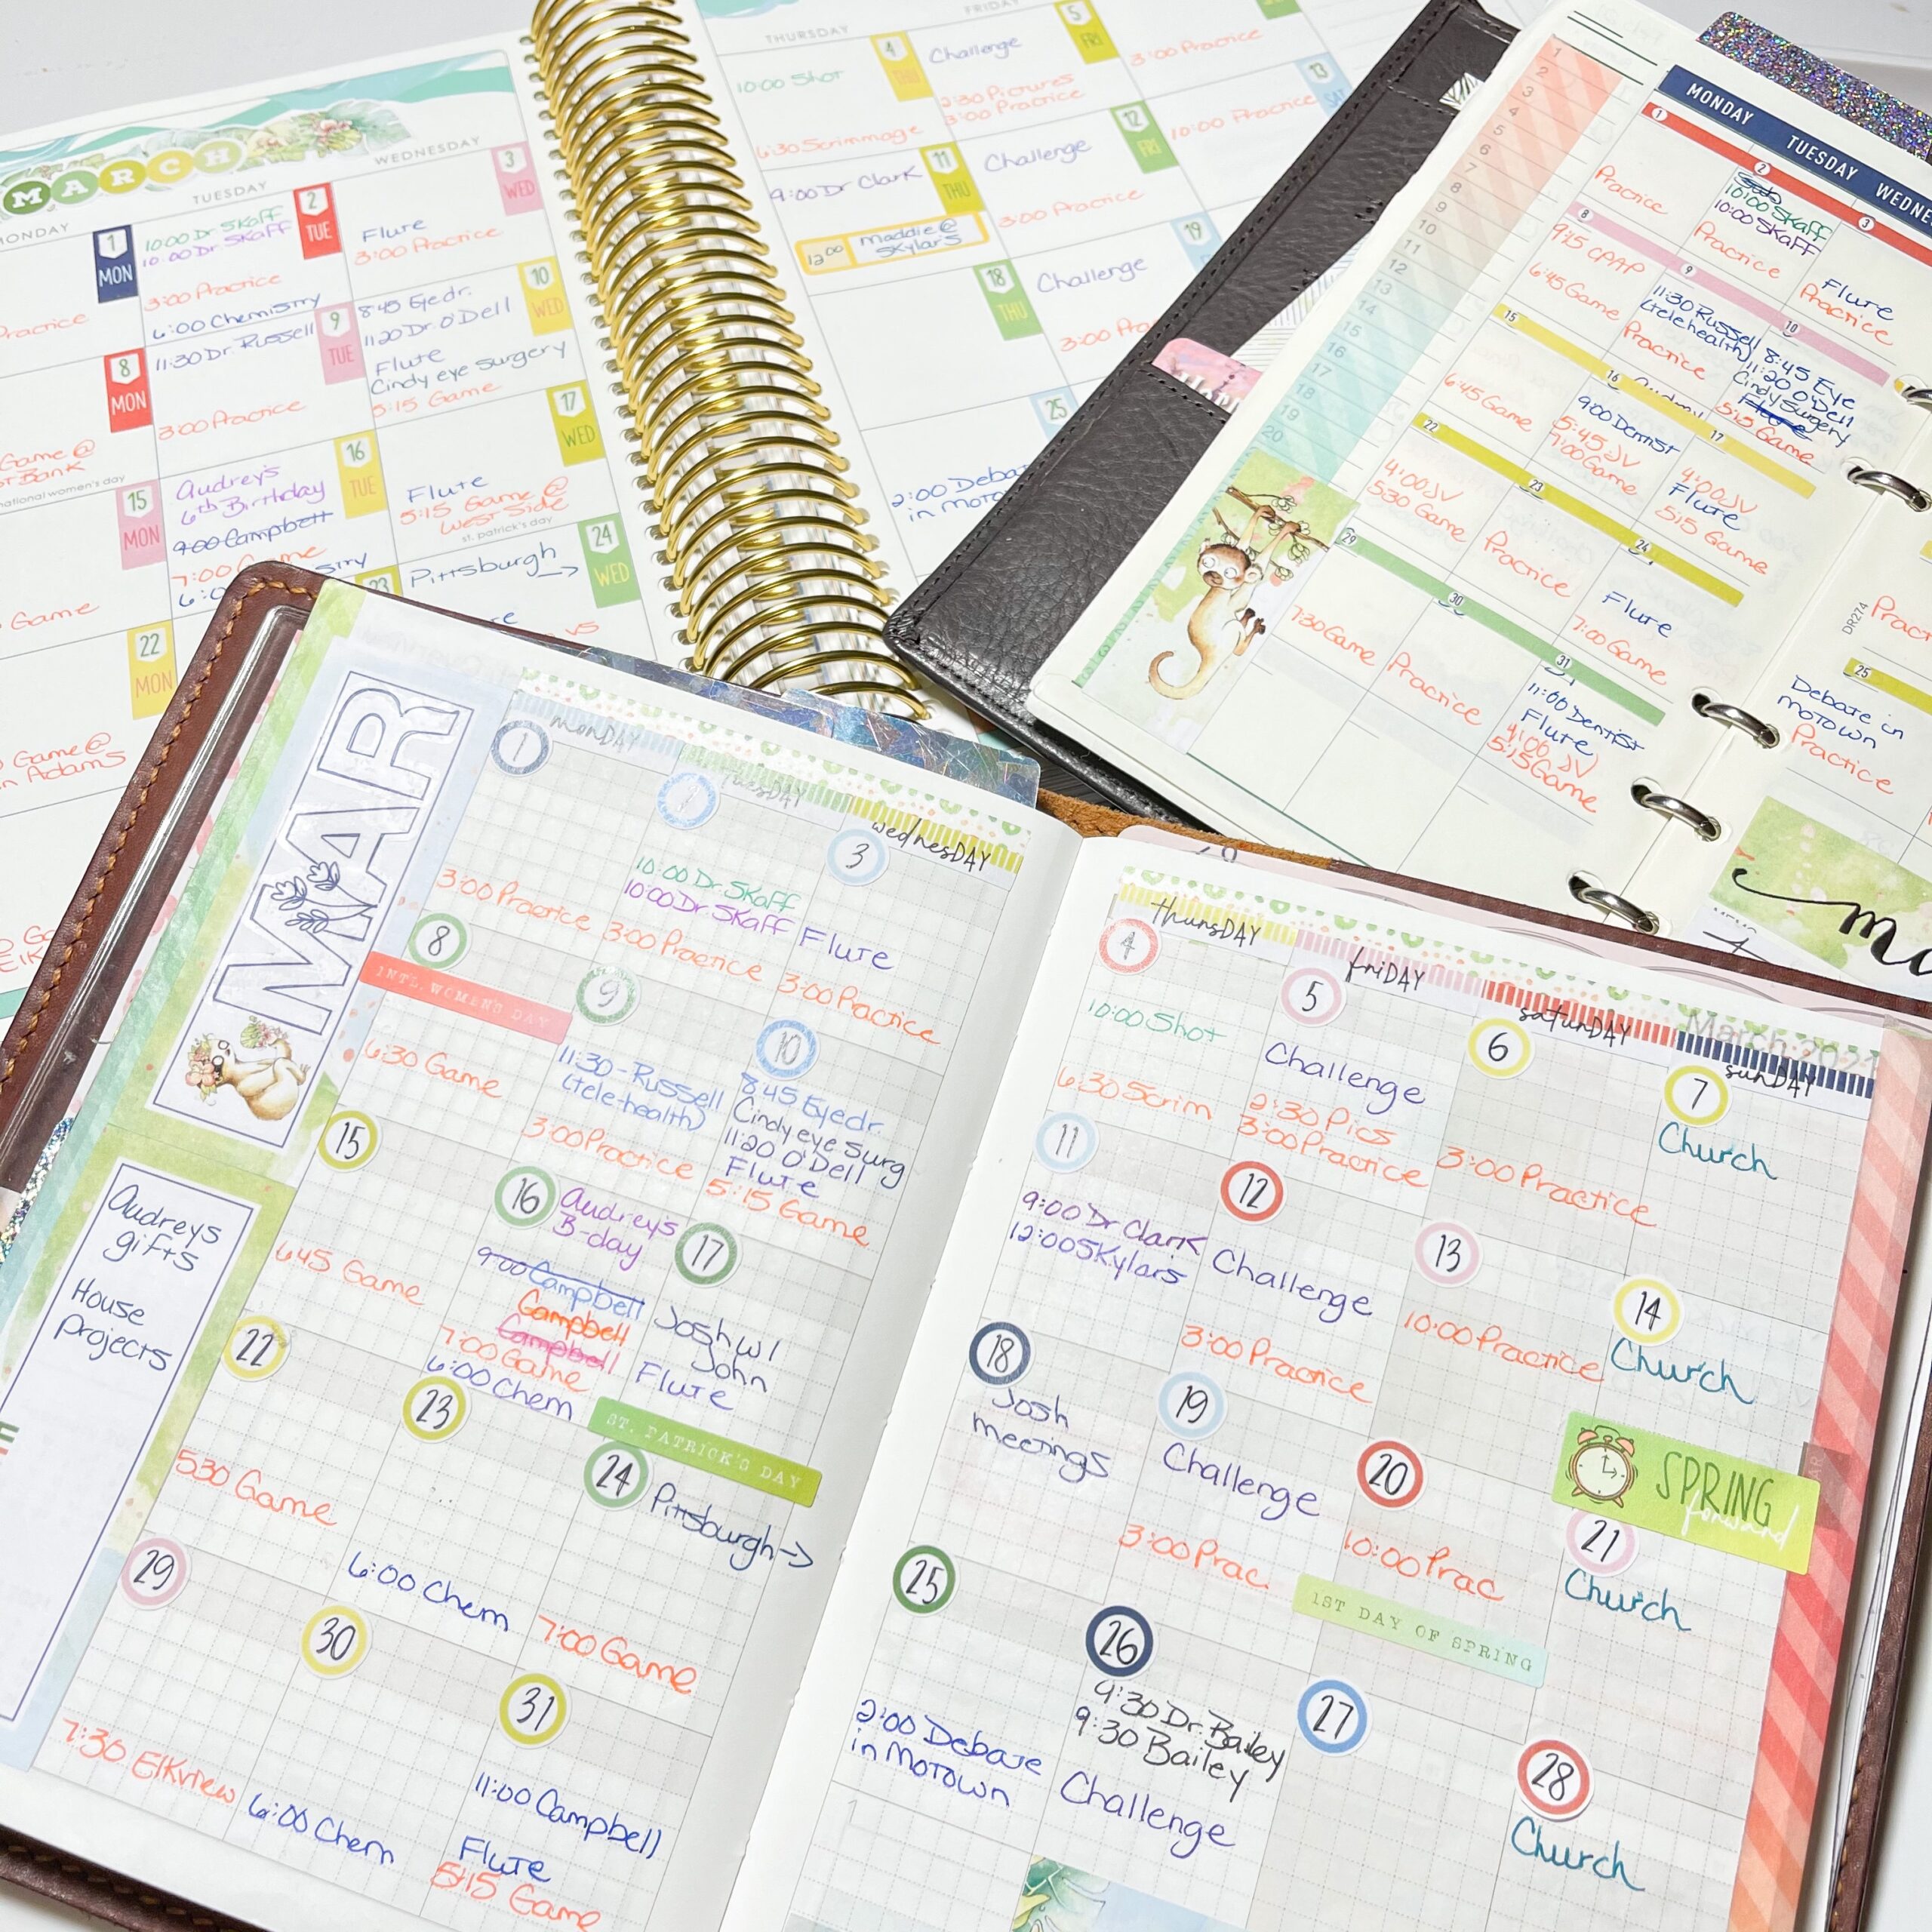 MARCH
MONDAY
TUESDAY
WEDNESDAY
1
MON
Practice
10:00 Dr Skaff
10:00 Dr Skaff
3:00 Practice
6:00 Chemistry
2
TUE
Flute
3:00 Practice
3
WED
8
MON
Game @
Bank
11:30 Dr. Russell
3:00 Practice
9
TUE
8:45 Eye dr.
11:20 Dr. O'Dell
Flute
Cindy eye surgery
5:15 Game
10
WED
national women's day
15
MON
Game
Audrey's
6th Birthday
9:00 Campbell
7:00 Game
16
TUE
Flute
5:15 Game @
West Side
st. patrick's day
17
WED
22
MON
Game @
Adams
23
Pittsburgh
→
24
WED
THURSDAY
FRIDAY
10:00 Shot
6:30 Scrimmage
4
THU
Challenge
2:30 Pictures
3:00 Practice
5
FRI
3:00 Practice
9:00 Dr Clark
11
THU
12:00
Maddie @
Skylar's
Challenge
3:00 Practice
12
FRI
10:00 Practice
13
SAT
18
THU
Challenge
19
25
2:00 Deba
in moto
1
2
3
4
5
6
7
8
9
10
11
12
13
14
15
16
17
18
19
20
MONDAY
TUESDAY
WEDNE
1
Practice
2
10:00 Skaff
10:00 Skaff
Practice
3
Flute
Practice
8
9:15 CPAP
6:45 Game
9
11:30 Russell
(telehealth)
Practice
10
8:45 Eye
11:20 O'Dell
Cindy Surgery
Flute
5:15 Game
15
6:45 Game
16
9:00 Dentist
5:45 JV
7:00 Game
17
4:00 JV
Flute
5:15 Game
22
4:00 JV
530 Game
23
Practice
24
Flute
7:00 Game
29
7:30 Game
30
Practice
31
11:00 Dentist
Flute
JV
5:15 Game
DR274
25
Debate in
motown
Practice
MAR
Audreys
gifts
House
Projects
monDAY
tuesDAY
wednesDAY
1
3:00 Practice
2
10:00 Dr. Skaff
10:00 Dr Skaff
3:00 Practice
3
Flute
3:00 Practice
8
INT'L WOMEN'S DAY
6:30 Game
9
11:30 - Russell
(tele-health)
3:00 Practice
10
8:45 Eye dr.
Cindy eye surg
11:20 O'Dell
Flute
5:15 Game
15
6:45 Game
16
Audrey's
B-day
9:00 Campbell
Campbell
Campbell
7:00 Game
6:00 Chem
17
Josh w/
John
Flute
ST. PATRICK'S DAY
22
530 Game
23
6:00 Chem
24
Pittsburgh →
7:00 Game
29
7:30 Elkview
30
6:00 Chem
31
11:00 Campbell
Flute
5:15 Game
thursDAY
friDAY
saturDAY
sunDAY
4
10:00 Shot
6:30 Scrim
5
Challenge
2:30 Pics
3:00 Practice
6
3:00 Practice
7
Church
11
9:00 Dr Clark
12:00 Skylars
12
Challenge
3:00 Practice
13
10:00 Practice
14
Church
SPRING
forward
18
Josh
meetings
19
Challenge
3:00 Prac.
20
10:00 Prac
1ST DAY OF SPRING
21
Church
25
2:00 Debate
in Motown
26
9:30 Dr. Bailey
9:30 Bailey
Challenge
27
28
Church